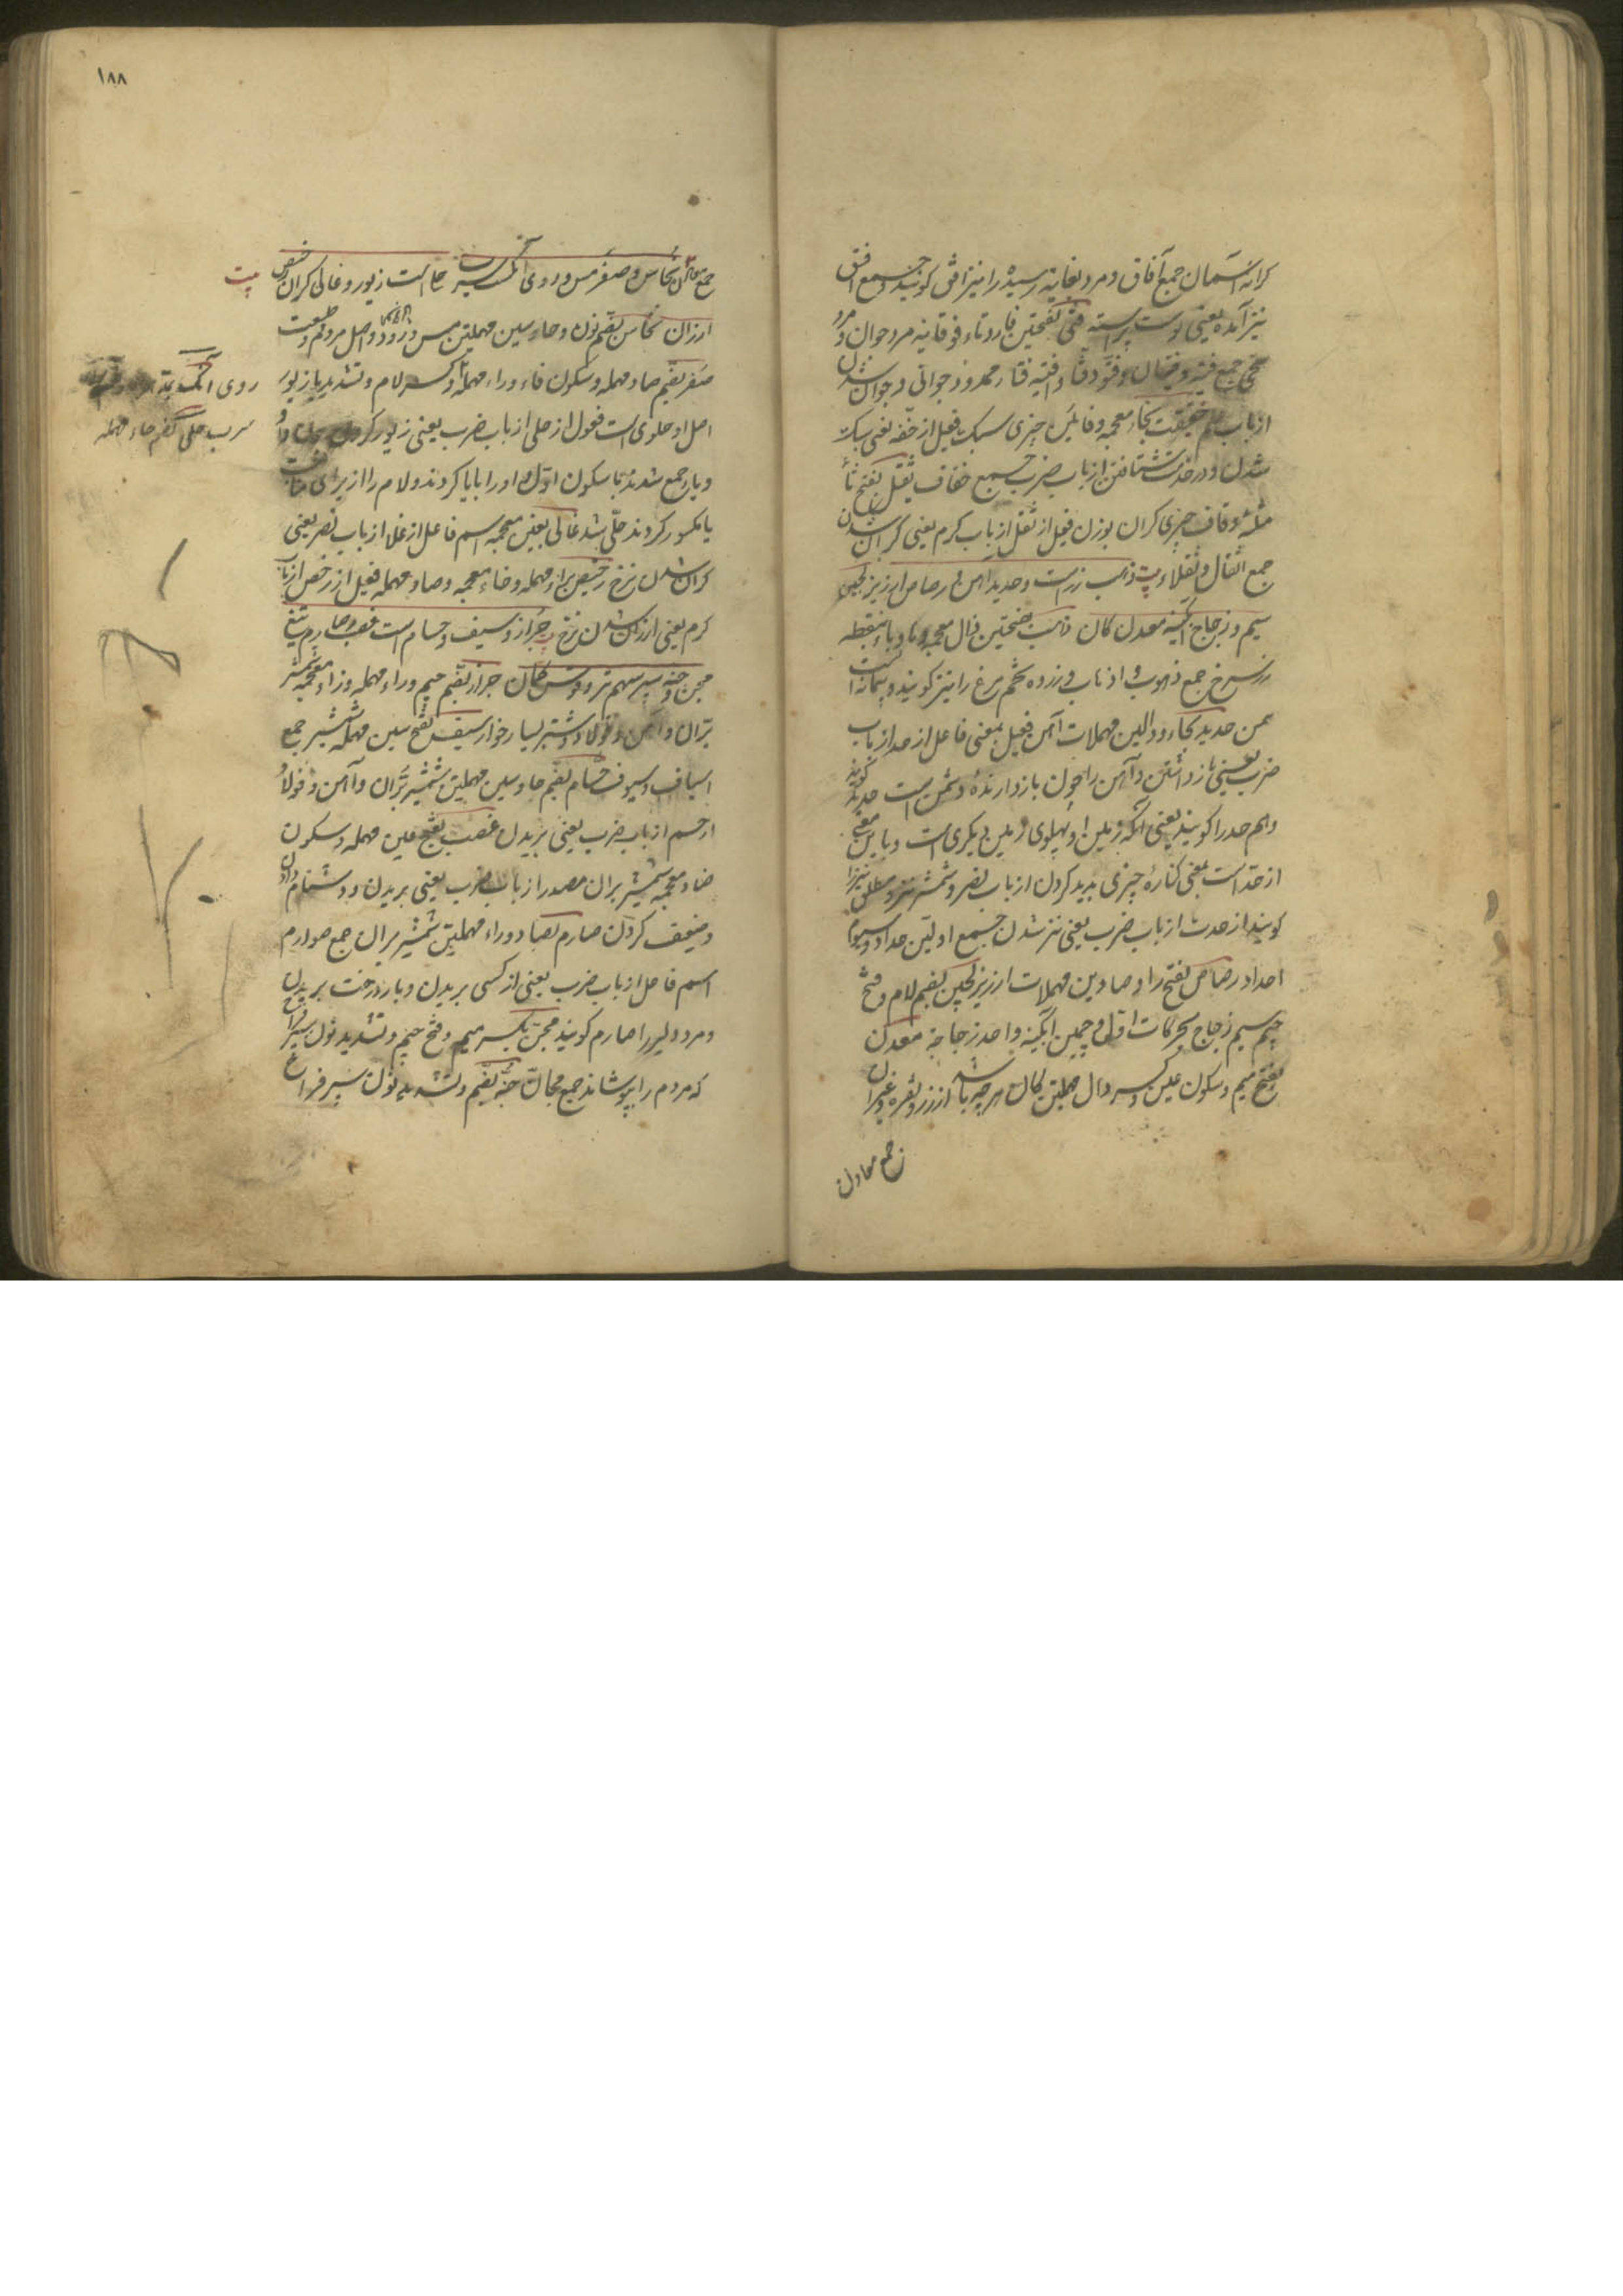 کرانه آسمان جمع آفاق و مرد بغایة رسیده را نیز افق کویند و جمع افیق
نیز آمده یعنی پوست پیراسته فتی بفتحتین فا و تاء فوقانیه مرد جوان و مرد
سخی جمع فتیه و فتیان و فتو و افتیه فتاء ممدود جوانی و جوان شدن
از باب علم خفیف بخاء معجمه و فائین چیزی سبک فعیل از خفه یعنی سبک
شدن و در خدمت شتافتن از باب ضرب جمع خفاف ثقیل بفتح ثاء
مثلثه و قاف چیزی کران بوزن فعیل از ثقل از باب کرم یعنی کران شدن
جمع اثقال و ثقلاء بیت ذهب زرست و حدید آهن و رصاص ارزیز لجین
سیم و زجاج آبکینه معدن کان ذهب بفتحتین ذال معجمه و هاء و باء بنقطه
زر سرخ جمع ذهوب و اذهاب و زرده تخم مرغ را نیز کویند و پیمانه است
یمن حدید بحاء و دالین مهملات آهن فعیل بمعنی فاعل از حد از باب
ضرب یعنی باز داشتن و آهن را چون باز دارنده دشمن است حدید کویند
و هم حد را کویند یعنی آنکه زمین او پهلوی زمین دیکری است و باین معنی
از حد است بمعنی کناره چیزی پدید کردن از باب نصر و شمشیر تیز و مطلق تیز را
کویند از حدت از باب ضرب یعنی تیز شدن جمع اولین حداد و سیوم
احداد رصاص بفتح را و صادین مهملات ارزیز لجین بضم لام و فتح
جیم سیم زجاج بحرکات اول و جیمین آبکینه واحد زجاجة معدن
بفتح میم و سکون عین و کسر دال مهملتین کان هرچه باشد از زر و نقره و غیر آن
جمع معادن
۱۸۸
جمع معادن نحاس و صفر مس و روی آنک سرب حلی است زیور و غالی کران رخیص
بیت
ارزان نحاس بضم نون و حاء و سین مهملتین مس و دود و اصل مردم و طبیعت
صفر بضم صاد مهمله و سکون فاء و راء مهمله و کسر لام و تشدید یا زیور
روی آنک
سرب حلی بضم حاء مهمله
اصل او حلوی است فعول از حلی از باب ضرب یعنی زیور کردن چون واو
و یا جمع شدند با سکون اول واو را بیا کردند و لام را از برای مناسبت
یا مکسور کردند حلی شد غالی بغین معجمه اسم فاعل از غلا از باب نصر یعنی
کران شدن نرخ رخیص براء مهمله و خاء معجمه و صاد مهمله فعیل از رخص از باب
کرم یعنی ارزان شدن نرخ جراز و سیف و حسام است عضب و صارم تیغ
مجن و جنه سپر سهم تیر و قوس کمان جراز بضم جیم و راء مهمله و زاء معجمه شمشیر
بران و آهن و فولاد و شتر بسیار خوار سیف بفتح سین مهمله شمشیر جمع
اسیاف و سیوف حسام بضم حا و سین مهملتین شمشیر بران و آهن و فولاد
از حسم از باب ضرب یعنی بریدن عضب بفتح عین مهمله و سکون
ضاد معجمه شمشیر بران مصدر از باب ضرب یعنی بریدن و دشنام دادن
و ضعیف کردن صارم بصاد و راء مهملتین شمشیر بران جمع صوارم
اسم فاعل از باب ضرب یعنی از کسی بریدن و بار درخت بریدن
و مرد دلیر را صارم کویند مجن بکسر میم و فتح جیم و تشدید نون سپر فراخ
که مردم را بپوشاند جمع مجان جنه بضم و تشدید نون سپر فراخ